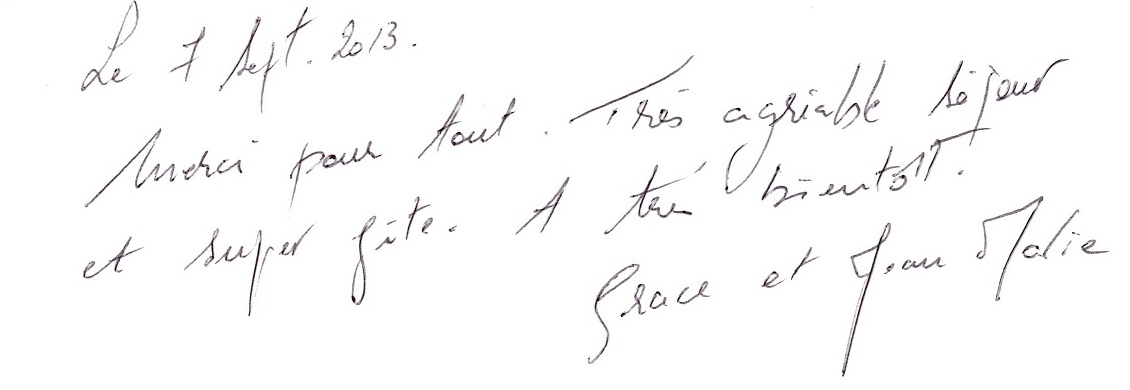 Le 7 Sept. 2013.
Merci pour tout. Très agréable séjour
et super gîte. A très bientôt.
Grace et Jean Marie